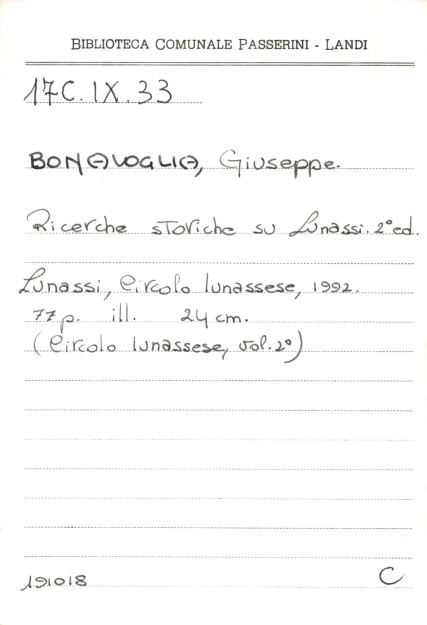 BIBLIOTECA COMUNALE PASSERINI - LANDI
17C.IX.33
BONAVOGLIA, Giuseppe.
Ricerche storiche su Lunassi. 2° ed.
Lunassi, Circolo lunassese, 1992.
77 p. ill. 24 cm.
(Circolo lunassese, vol. 2°)
191018 C